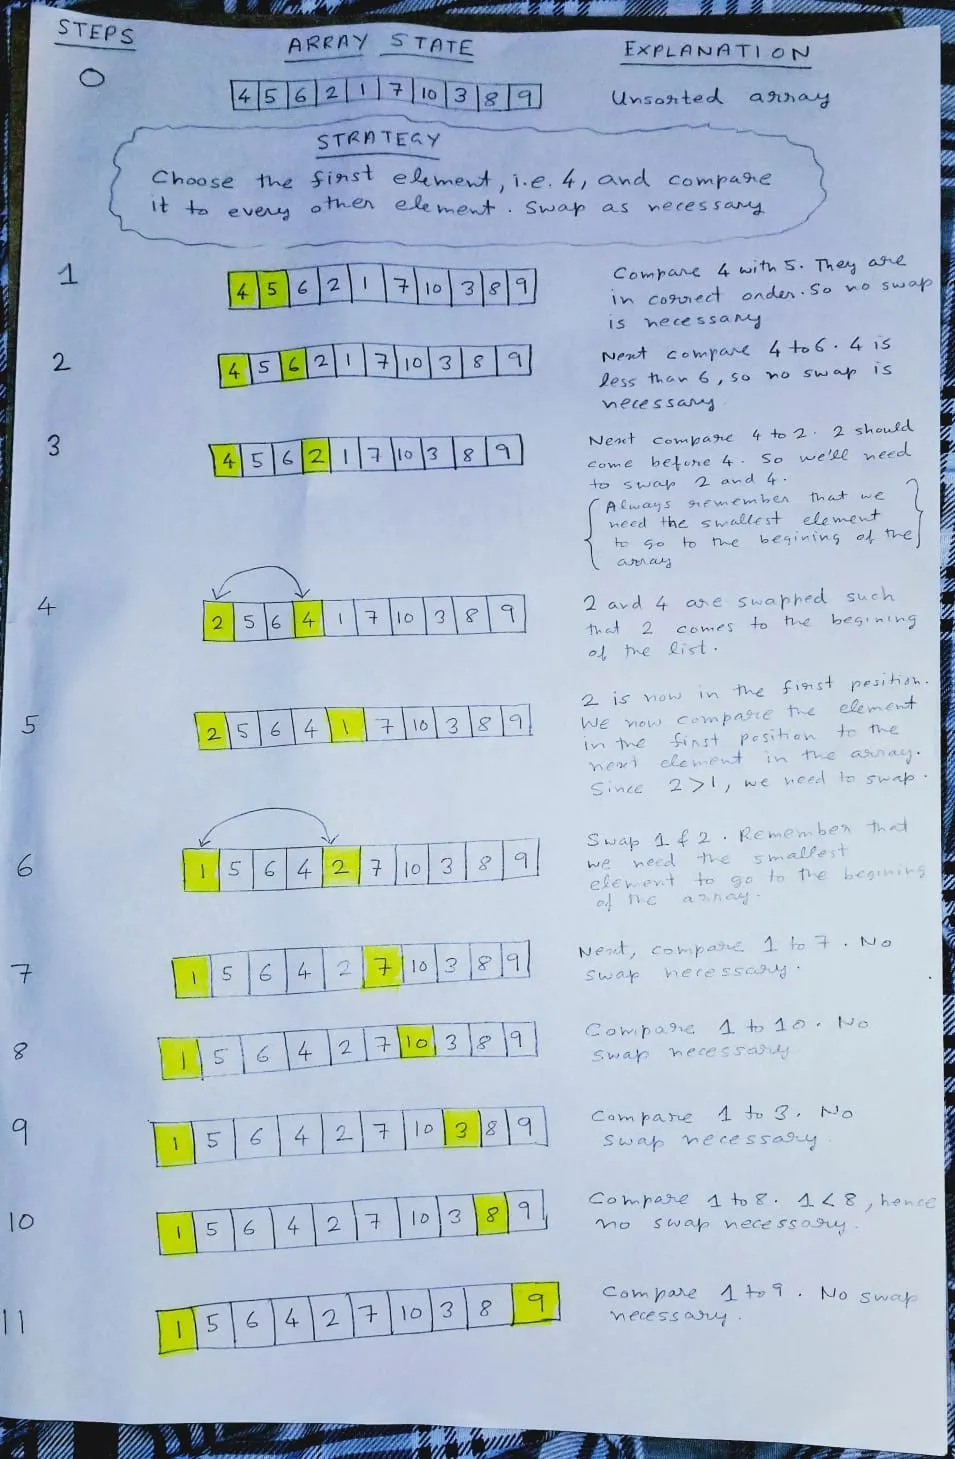 STEPS ARRAY STATE EXPLANATION
0 4 5 6 2 1 7 10 3 8 9 Unsorted array
STRATEGY
Choose the first element, i.e. 4, and compare
it to every other element. Swap as necessary
1 4 5 6 2 1 7 10 3 8 9 Compare 4 with 5. They are
in correct order. So no swap
is necessary
2 4 5 6 2 1 7 10 3 8 9 Next compare 4 to 6. 4 is
less than 6, so no swap is
necessary
3 4 5 6 2 1 7 10 3 8 9 Next compare 4 to 2. 2 should
come before 4. So we'll need
to swap 2 and 4.
{Always remember that we
need the smallest element
to go to the begining of the
array}
4 2 5 6 4 1 7 10 3 8 9 2 and 4 are swapped such
that 2 comes to the begining
of the list.
5 2 5 6 4 1 7 10 3 8 9 2 is now in the first position.
We now compare the element
in the first position to the
next element in the array.
Since 2 > 1, we need to swap.
6 1 5 6 4 2 7 10 3 8 9 Swap 1 & 2. Remember that
we need the smallest
element to go to the begining
of the array.
7 1 5 6 4 2 7 10 3 8 9 Next, compare 1 to 7. No
swap necessary.
8 1 5 6 4 2 7 10 3 8 9 Compare 1 to 10. No
swap necessary
9 1 5 6 4 2 7 10 3 8 9 Compare 1 to 3. No
swap necessary.
10 1 5 6 4 2 7 10 3 8 9 Compare 1 to 8. 1 < 8, hence
no swap necessary.
11 1 5 6 4 2 7 10 3 8 9 Compare 1 to 9. No swap
necessary.